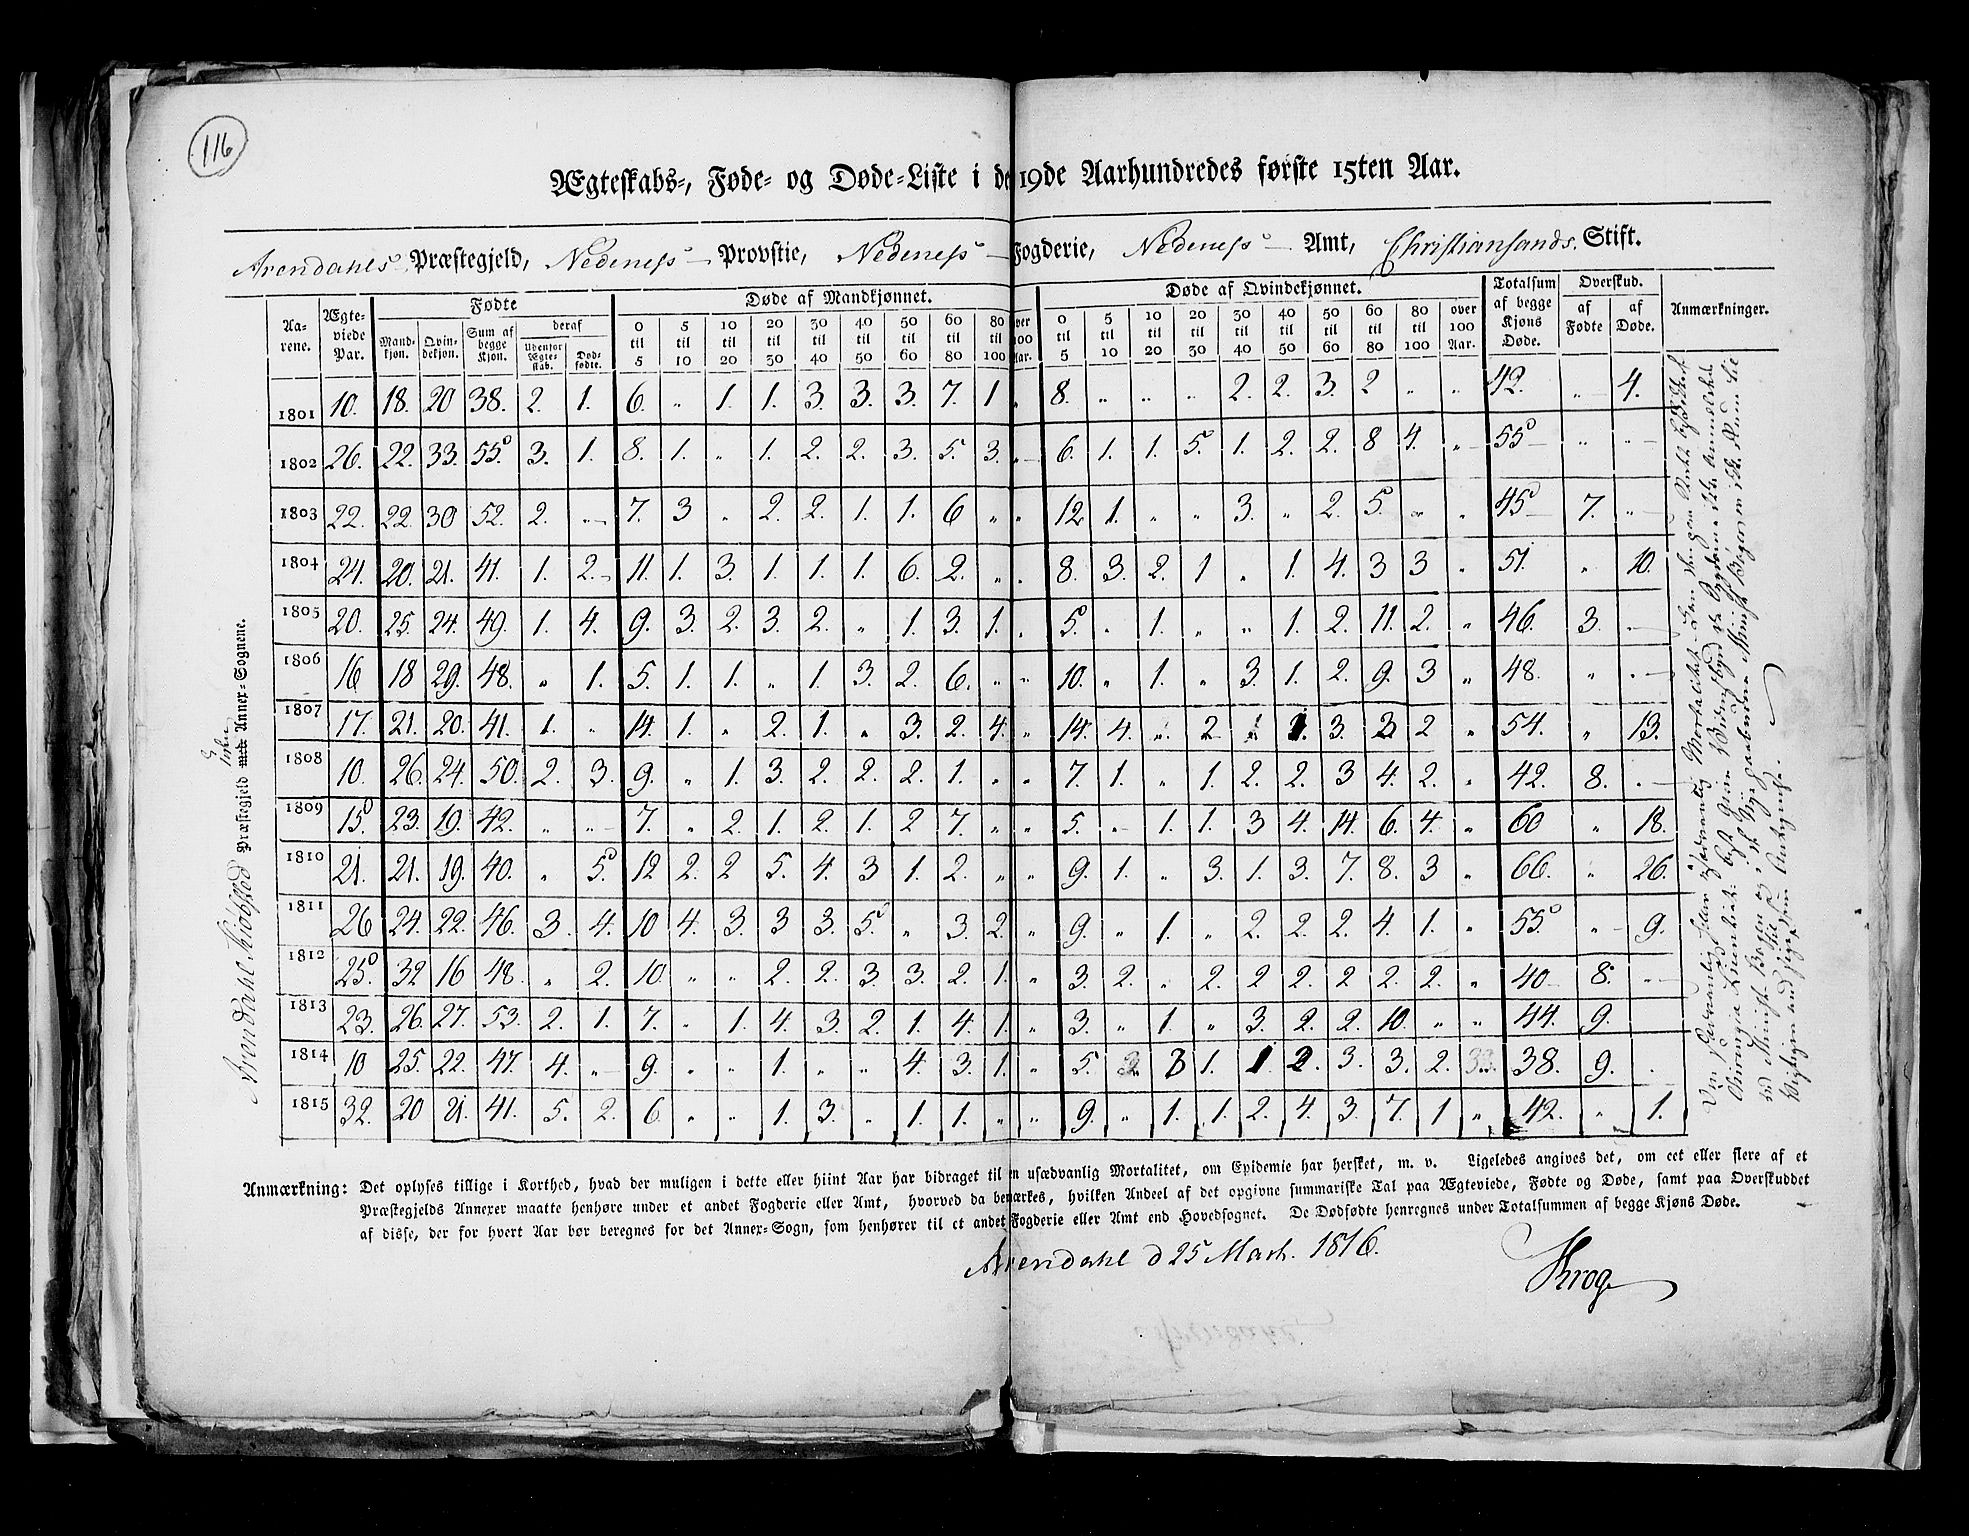 116
Ægteskabs-, Føde- og Døde-Liste i det 19de Aarhundredes første 15ten Aar.
Arendahls Præstegjeld, Nedeness Provstie, Nedeness Fogderie, Nedeness Amt, Christiansands Stift.
Aarene. Ægteviede Par. Fødte Døde af Mandkjønnet. Døde af Qvindekjønnet. Totalsum af begge Kjøns Døde. Overskud. Anmærkninger.
Mandkjøn. Qvindekjøn. Sum af begge Kjøn. deraf Udenfor Ægteskab. Dødfødte. af Fødte af Døde.
0 til 5 5 til 10 10 til 20 20 til 30 30 til 40 40 til 50 50 til 60 60 til 80 80 til 100 over 100 Aar. 0 til 5 5 til 10 10 til 20 20 til 30 30 til 40 40 til 50 50 til 60 60 til 80 80 til 100 over 100 Aar.
1801 10. 18. 20 38. 2. 1. 6. „ 1. 1. 3. 3. 3. 7. 1 „ 8. „ „ „ 2. 2. 3. 2 „ „ 42. „ 4.
1802 26. 22. 33. 55. 3. 1. 8. 1. „ 1. 2. 2. 3. 5. 3. „ 6. 1. 1. 5. 1. 2. 2. 8 4. „ 55 „ „
1803 22. 22. 30 52. 2. „ 7. 3 „ 2. 2. 1. 1. 6 „ „ 12 1. „ „ 3. „ 2. 5. „ „ 45 7. „
1804 24. 20. 21. 41. 1. 2. 11. 1. 3. 1. 1. 1. 6. 2. „ „ 8. 3. 2. 1 „ 1. 4. 3 3 „ 51. „ 10.
1805 20. 25. 24. 49. 1. 4. 9. 3. 2. 3. 2. „ 1. 3. 1. „ 5. „ 1. „ „ 1. 2. 11. 2. „ 46. 3. „
1806 16 18 29. 48. „ 1. 5. 1. 1. „ 1. 3. 2. 6. „ „ 10. „ 1. „ 3. 1. 2. 9. 3 „ 48. „ „
1807 17. 21. 20. 41. 1. „ 14. 1. „ 2. 1. „ 3. 2. 4. „ 14. 4. „ 2. 1. 1. 3. 3 2 „ 54. „ 13.
1808 10. 26. 24. 50. 2. 3. 9. „ 1. 3. 2. 2. 2. 1. „ „ 7. 1. „ 1. 2. 2. 3 4. 2. „ 42. 8. „
1809 15. 23. 19. 42. „ „ 7. „ 2. 1. 2. 1. 2 7. „ „ 5. „ 1. 1. 3 4. 14. 6. 4. „ 60 „ 18.
1810 21. 21. 19. 40. „ 5. 12 2. 2 5. 4. 3 1. 2. „ „ 9. 1. „ 3. 1. 3. 7. 8. 3 „ 66. „ 26.
1811 26 24. 22. 46. 3. 4. 10 4. 3. 3 3. 5. „ 3. 2. „ 9. „ 1. „ 2. 2. 2. 4 1. „ 55. „ 9.
1812 25. 32 16 48. „ 2. 10. „ „ 2. 2. 3. 3. 2. 1. „ 3. 2. „ 2. 2. 2. 2. 2. 2. „ 40 8. „
1813 23. 26. 27. 53. 2. 1. 7. „ 1. 4. 3. 2. 1. 4. 1. „ 3. „ 1. „ 3. 2. 2. 10. „ „ 44. 9.
1814 10 25. 22. 47. 4. „ 9. „ „ 1. „ „ 4. 3. 1. „ 5. 3 1. 1 2. 3. 3. 2. 38. 9. „
1815 32. 20 21. 41. 5. 2. 6. „ „ 1. 3. „ 1. 1. „ „ 9. „ 1. 1. 2. 4. 3. 7. 1 „ 42. „ 1.
Arendahl Kiøbsted Præstegjeld med Annex-Sognene.
Anmærkning: Det oplyses tillige i Korthed, hvad der muligen i dette eller hiint Aar har bidraget til en usædvanlig Mortalitet, om Epidemie har hersket, m. v. Ligeledes angives det, om eet eller flere af et
Præstegjelds Annexer maatte henhøre under et andet Fogderie eller Amt, hvorved da bemærkes, hvilken Andeel af det opgivne summariske Tal paa Ægteviede, Fødte og Døde, samt paa Overskuddet
af disse, der for hvert Aar bør beregnes for det Annex-Sogn, som henhører til et andet Fogderie eller Amt end Hovedsognet. De Dødfødte henregnes under Totalsummen af begge Kjøns Døde.
Arendahl d 25 Marts. 1816.
Krog